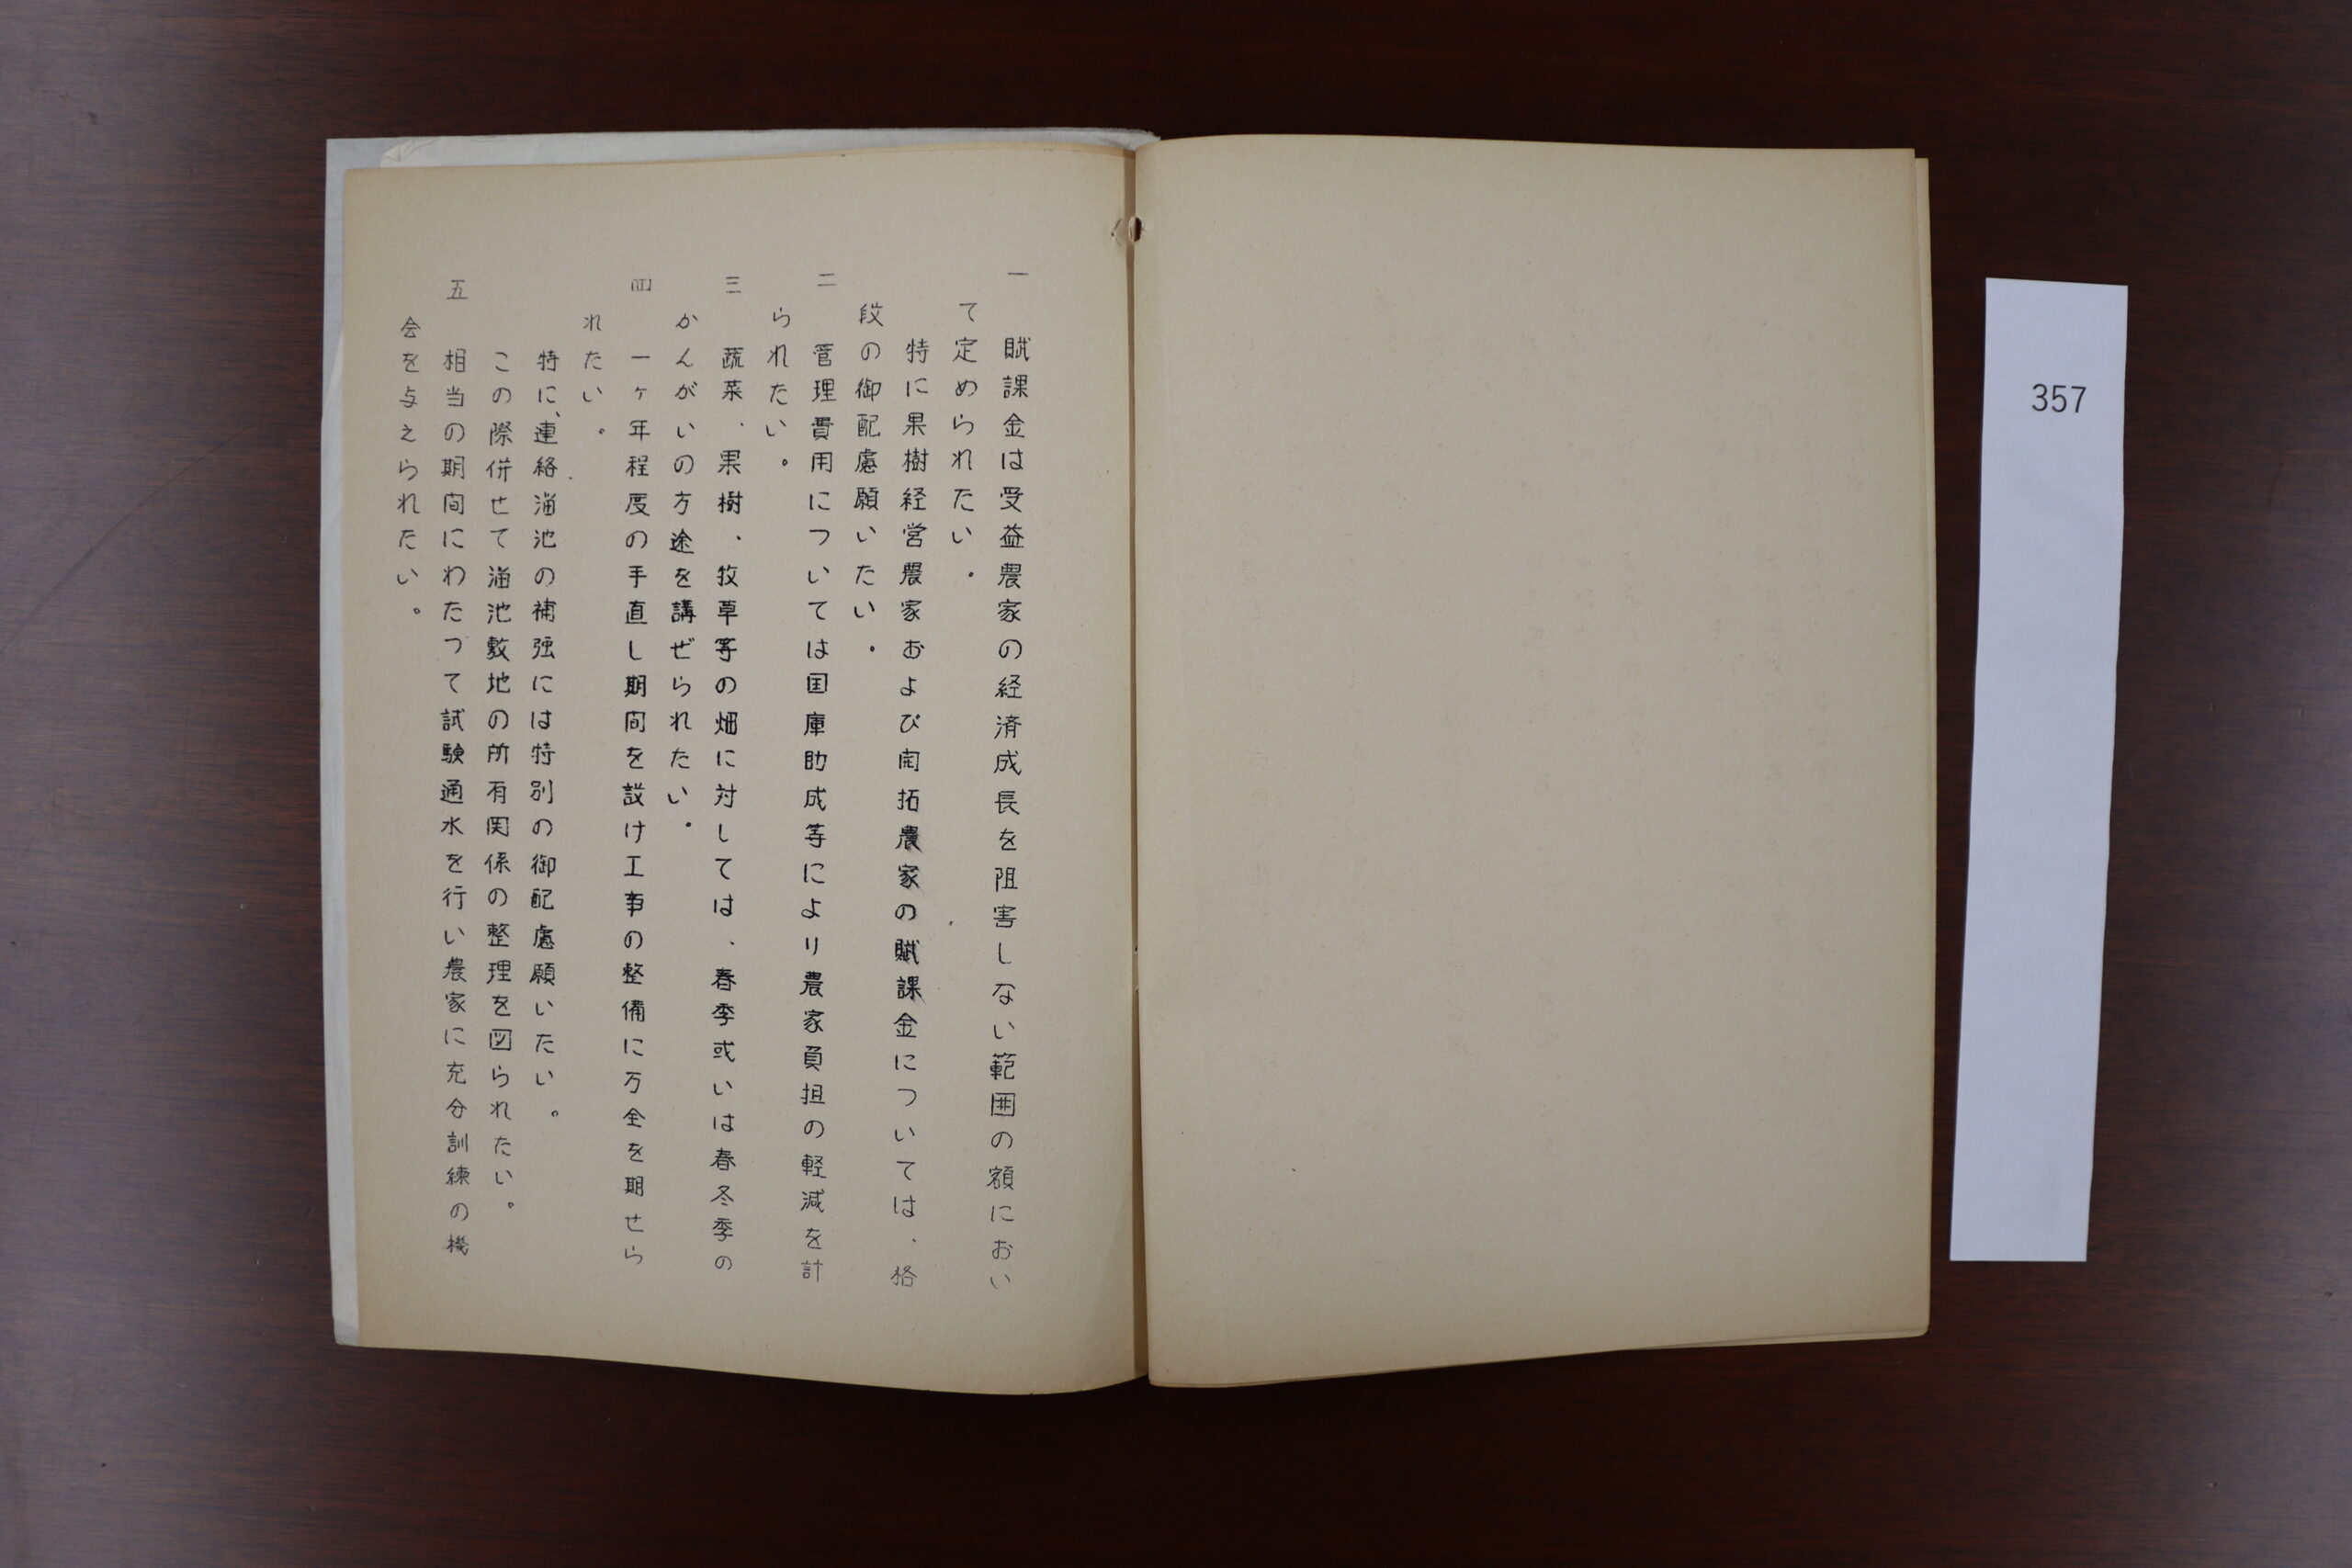 一　賦課金は受益農家の経済成長を阻害しない範囲の額におい
て定められたい。
特に果樹経営農家および開拓農家の賦課金については、格
段の御配慮願いたい。
二　管理費用については国庫助成等により農家負担の軽減を計
られたい。
三　蔬菜、果樹、牧草等の畑に対しては、春季或いは春冬季の
かんがいの方途を講ぜられたい。
四　一ヶ年程度の手直し期間を設け工事の整備に万全を期せら
れたい。
特に、連絡溜池の補強には特別の御配慮願いたい。
この際併せて溜池敷地の所有関係の整理を図られたい。
五　相当の期間にわたつて試験通水を行い農家に充分訓練の機
会を与えられたい。
357